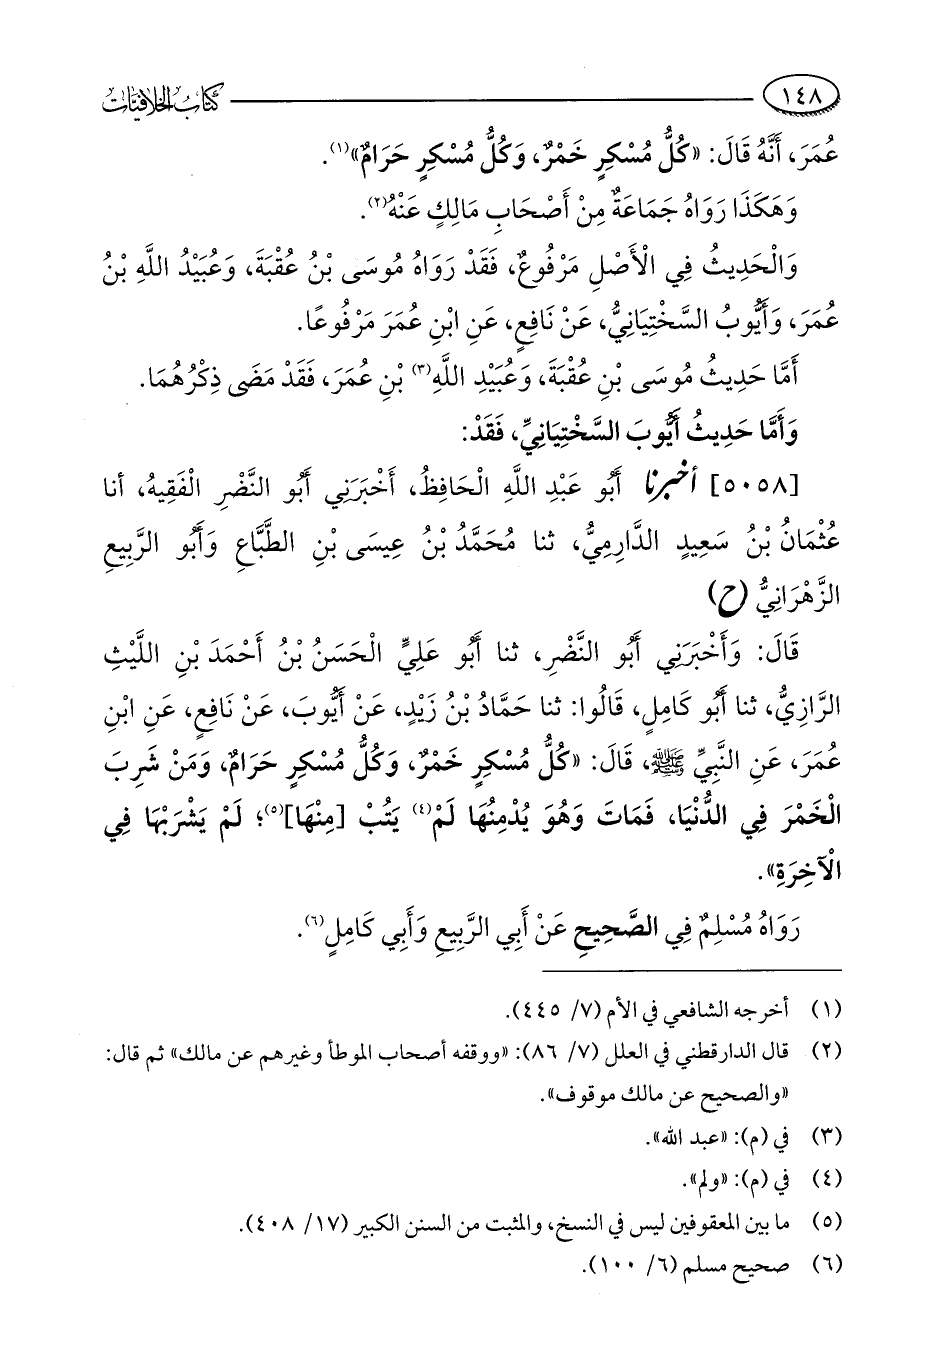 ١٤٨ كتاب الخلافيات
عُمَرَ، أَنَّهُ قَالَ: «كُلُّ مُسْكِرٍ خَمْرٌ، وَكُلُّ مُسْكِرٍ حَرَامٌ»(١).
وَهَكَذَا رَوَاهُ جَمَاعَةٌ مِنْ أَصْحَابِ مَالِكٍ عَنْهُ(٢).
وَالْحَدِيثُ فِي الْأَصْلِ مَرْفُوعٌ، فَقَدْ رَوَاهُ مُوسَى بْنُ عُقْبَةَ، وَعُبَيْدُ اللَّهِ بْنُ
عُمَرَ، وَأَيُّوبُ السَّخْتِيَانِيُّ، عَنْ نَافِعٍ، عَنِ ابْنِ عُمَرَ مَرْفُوعًا.
أَمَّا حَدِيثُ مُوسَى بْنِ عُقْبَةَ، وَعُبَيْدِ اللَّهِ(٣) بْنِ عُمَرَ، فَقَدْ مَضَى ذِكْرُهُمَا.
وَأَمَّا حَدِيثُ أَيُّوبَ السَّخْتِيَانِيِّ، فَقَدْ:
[٥٠٥٨] أخبرنا أَبُو عَبْدِ اللَّهِ الْحَافِظُ، أَخْبَرَنِي أَبُو النَّضْرِ الْفَقِيهُ، أنا
عُثْمَانُ بْنُ سَعِيدٍ الدَّارِمِيُّ، ثنا مُحَمَّدُ بْنُ عِيسَى بْنِ الطَّبَّاعِ وَأَبُو الرَّبِيعِ
الزَّهْرَانِيُّ (ح)
قَالَ: وَأَخْبَرَنِي أَبُو النَّضْرِ، ثنا أَبُو عَلِيٍّ الْحَسَنُ بْنُ أَحْمَدَ بْنِ اللَّيْثِ
الرَّازِيُّ، ثنا أَبُو كَامِلٍ، قَالُوا: ثنا حَمَّادُ بْنُ زَيْدٍ، عَنْ أَيُّوبَ، عَنْ نَافِعٍ، عَنِ ابْنِ
عُمَرَ، عَنِ النَّبِيِّ ﷺ، قَالَ: «كُلُّ مُسْكِرٍ خَمْرٌ، وَكُلُّ مُسْكِرٍ حَرَامٌ، وَمَنْ شَرِبَ
الْخَمْرَ فِي الدُّنْيَا، فَمَاتَ وَهُوَ يُدْمِنُهَا لَمْ(٤) يَتُبْ [مِنْهَا](٥)؛ لَمْ يَشْرَبْهَا فِي
الْآخِرَةِ».
رَوَاهُ مُسْلِمٌ فِي الصَّحِيحِ عَنْ أَبِي الرَّبِيعِ وَأَبِي كَامِلٍ(٦).
(١) أخرجه الشافعي في الأم (٧/ ٤٤٥).
(٢) قال الدارقطني في العلل (٧/ ٨٦): «ووقفه أصحاب الموطأ وغيرهم عن مالك» ثم قال:
«والصحيح عن مالك موقوف».
(٣) في (م): «عبد الله».
(٤) في (م): «ولم».
(٥) ما بين المعقوفين ليس في النسخ، والمثبت من السنن الكبير (١٧/ ٤٠٨).
(٦) صحيح مسلم (٦/ ١٠٠).